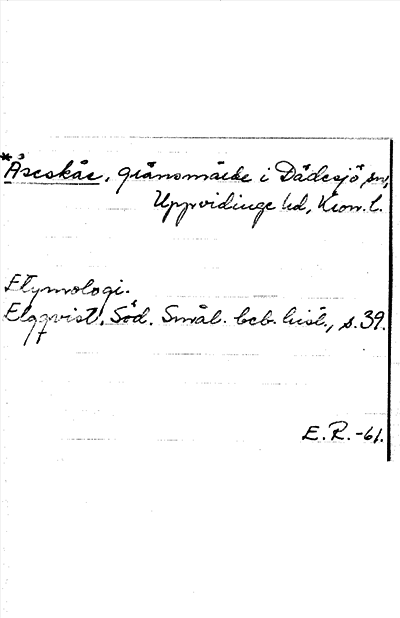 *Åseskär, gränsmärke i Dädesjö sn,
Uppvidinge hd, Kron. l.
Etymologi.
Elgqvist, Söd. Smål. beb. hist., s. 39.
E.R. -61.